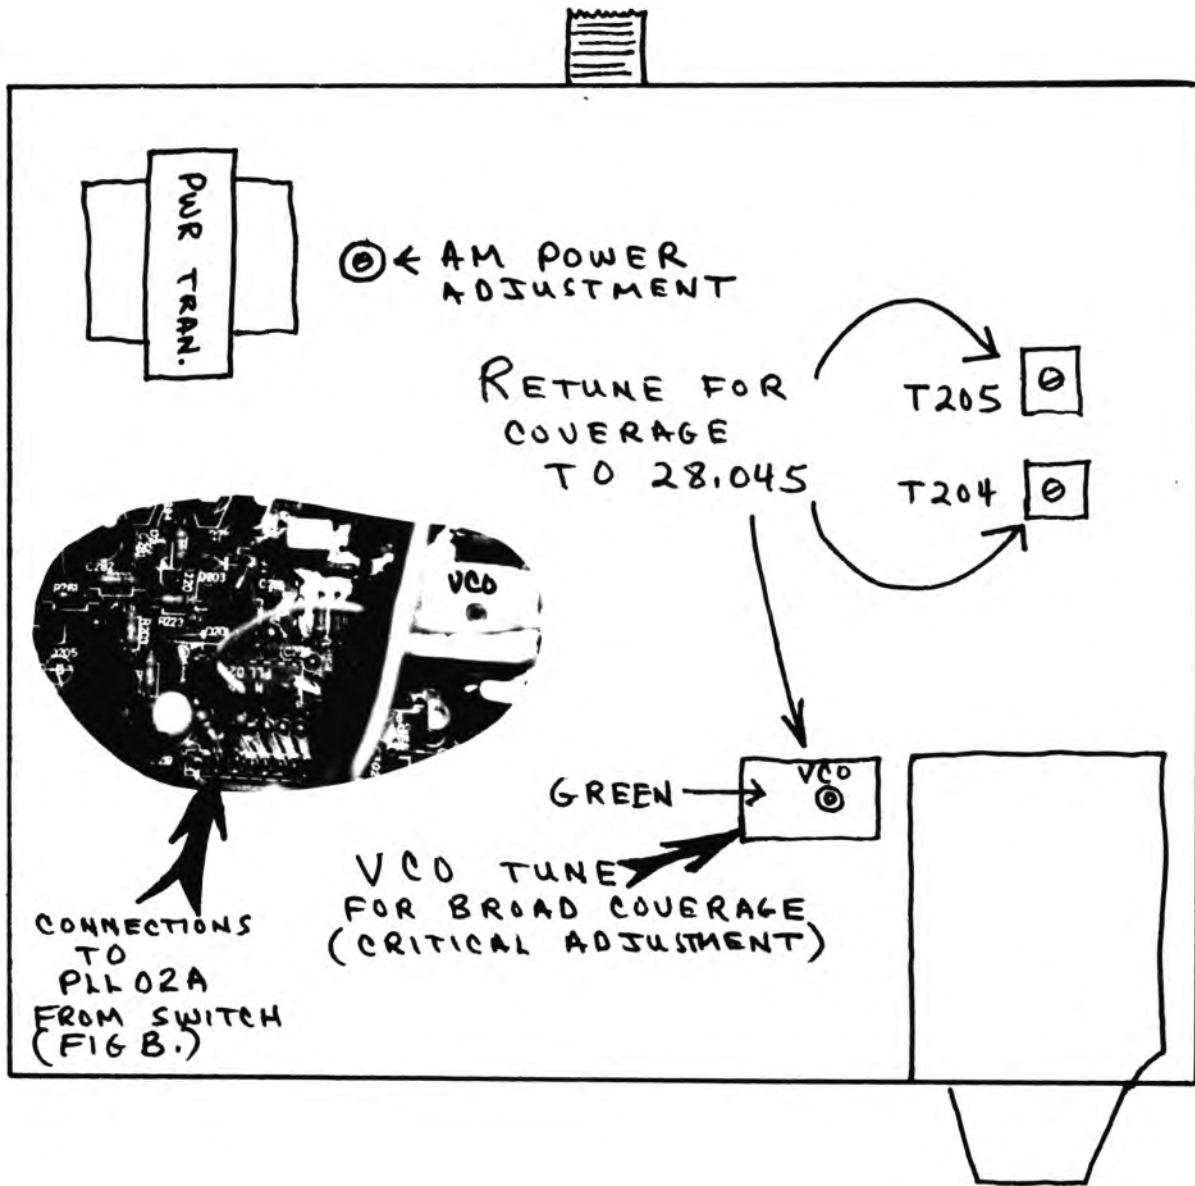 PWR TRAN.
← AM POWER
ADJUSTMENT
RETUNE FOR
COVERAGE
TO 28.045
T205
T204
VCO
R223
PLL 02
VCO
GREEN
VCO TUNE
FOR BROAD COVERAGE
(CRITICAL ADJUSTMENT)
CONNECTIONS
TO
PLL02A
FROM SWITCH
(FIG B.)